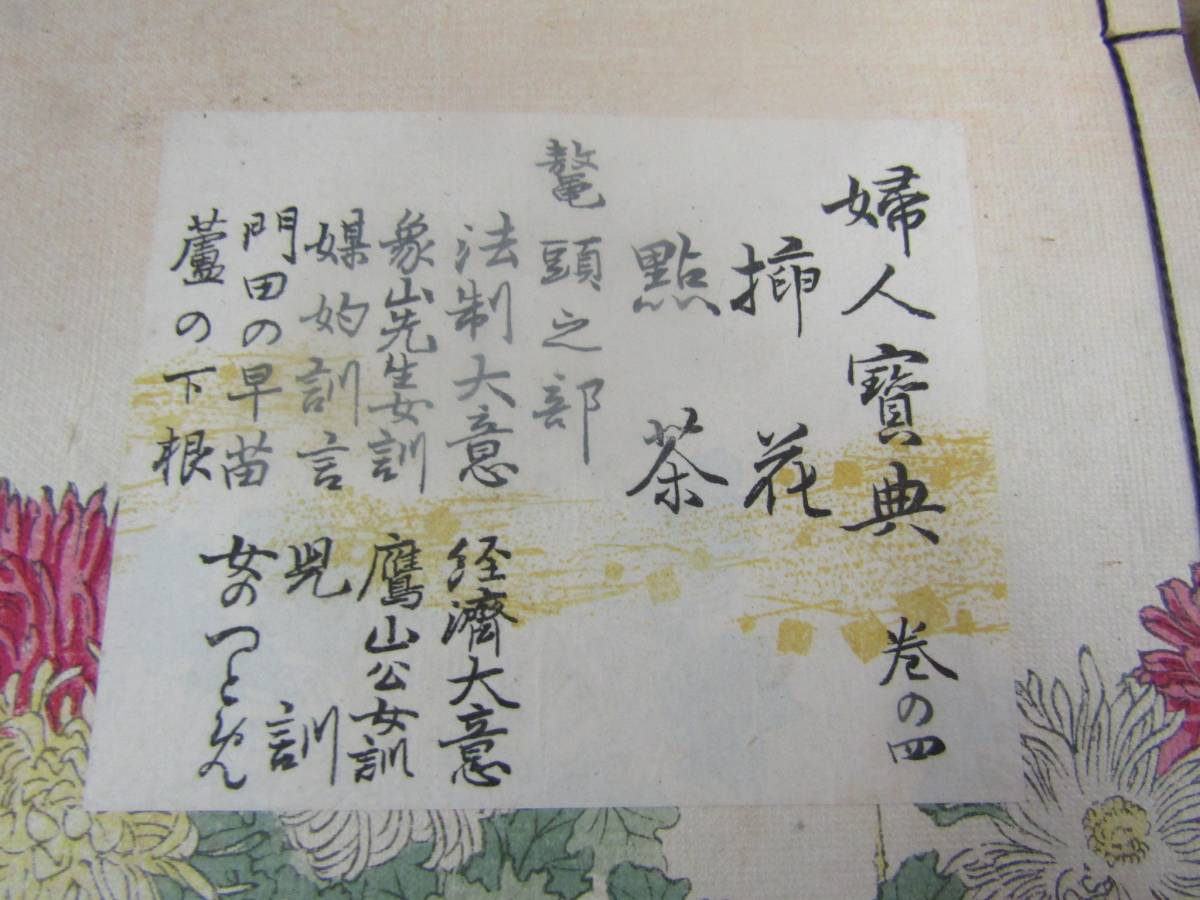 婦人寶典 巻の四
挿花
點茶
鼇頭之部
法制大意 経濟大意
象山先生女訓 鷹山公女訓
媒妁訓言 兒訓
門田の早苗 女のつとめ
蘆の下根